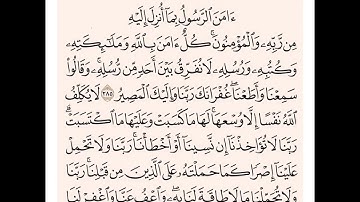 ءَامَنَ ٱلرَّسُولُ بِمَآ أُنزِلَ إِلَيْهِ
مِن رَّبِّهِۦ وَٱلْمُؤْمِنُونَ ۚ كُلٌّ ءَامَنَ بِٱللَّهِ وَمَلَٰٓئِكَتِهِۦ
وَكُتُبِهِۦ وَرُسُلِهِۦ لَا نُفَرِّقُ بَيْنَ أَحَدٍ مِّن رُّسُلِهِۦ ۚ وَقَالُوا۟
سَمِعْنَا وَأَطَعْنَا ۖ غُفْرَانَكَ رَبَّنَا وَإِلَيْكَ ٱلْمَصِيرُ ٢٨٥ لَا يُكَلِّفُ
ٱللَّهُ نَفْسًا إِلَّا وُسْعَهَا ۚ لَهَا مَا كَسَبَتْ وَعَلَيْهَا مَا ٱكْتَسَبَتْ ۗ
رَبَّنَا لَا تُؤَاخِذْنَآ إِن نَّسِينَآ أَوْ أَخْطَأْنَا ۚ رَبَّنَا وَلَا تَحْمِلْ
عَلَيْنَآ إِصْرًا كَمَا حَمَلْتَهُۥ عَلَى ٱلَّذِينَ مِن قَبْلِنَا ۚ رَبَّنَا
وَلَا تُحَمِّلْنَا مَا لَا طَاقَةَ لَنَا بِهِۦ ۖ وَٱعْفُ عَنَّا وَٱغْفِرْ لَنَا